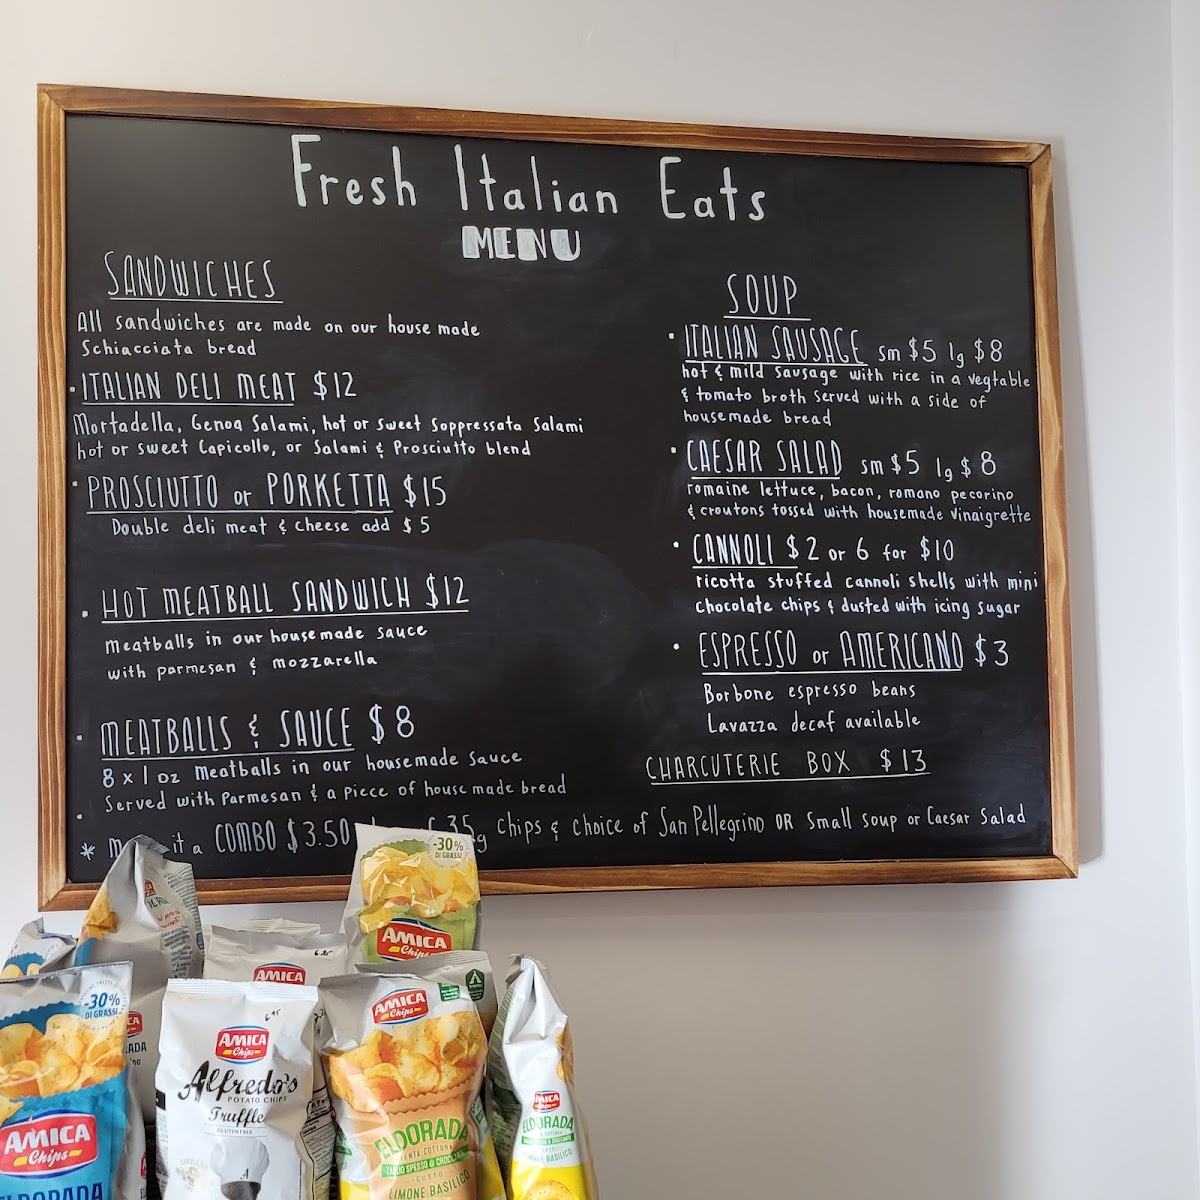 Fresh Italian Eats
MENU
SANDWICHES
All sandwiches are made on our house made
Schiacciata bread
· ITALIAN DELI MEAT $12
Mortadella, Genoa Salami, hot or sweet Soppressata Salami
hot or sweet Capicollo, or Salami & Prosciutto blend
· PROSCIUTTO or PORKETTA $15
Double deli meat & cheese add $5
· HOT MEATBALL SANDWICH $12
Meatballs in our housemade sauce
with parmesan & mozzarella
· MEATBALLS & SAUCE $8
8 x 1 oz Meatballs in our housemade sauce
Served with Parmesan & a piece of house made bread
SOUP
· ITALIAN SAUSAGE sm $5 lg $8
hot & mild sausage with rice in a vegtable
& tomato broth served with a side of
housemade bread
· CAESAR SALAD sm $5 lg $8
romaine lettuce, bacon, romano pecorino
& croutons tossed with housemade vinaigrette
· CANNOLI $2 or 6 for $10
ricotta stuffed cannoli shells with mini
chocolate chips & dusted with icing sugar
· ESPRESSO or AMERICANO $3
Borbone espresso beans
Lavazza decaf available
CHARCUTERIE BOX $13
* it a COMBO $3.50 35g Chips & Choice of San Pellegrino OR Small soup or Caesar Salad
-30%
DI GRASSI
AMICA
Chips
AMICA
-30%
DI GRASSI
AMICA
Chips
ELDORADA
AMICA
Chips
Alfredo's
POTATO CHIPS
Truffle
GLUTEN FREE
AMICA
Chips
ELDORADA
LENTA COTTURA
TAGLIO SPESSO & CROCCANTE
GUSTO
LIMONE BASILICO
AMICA
Chips
ELDORADA
LIMONE BASILICO